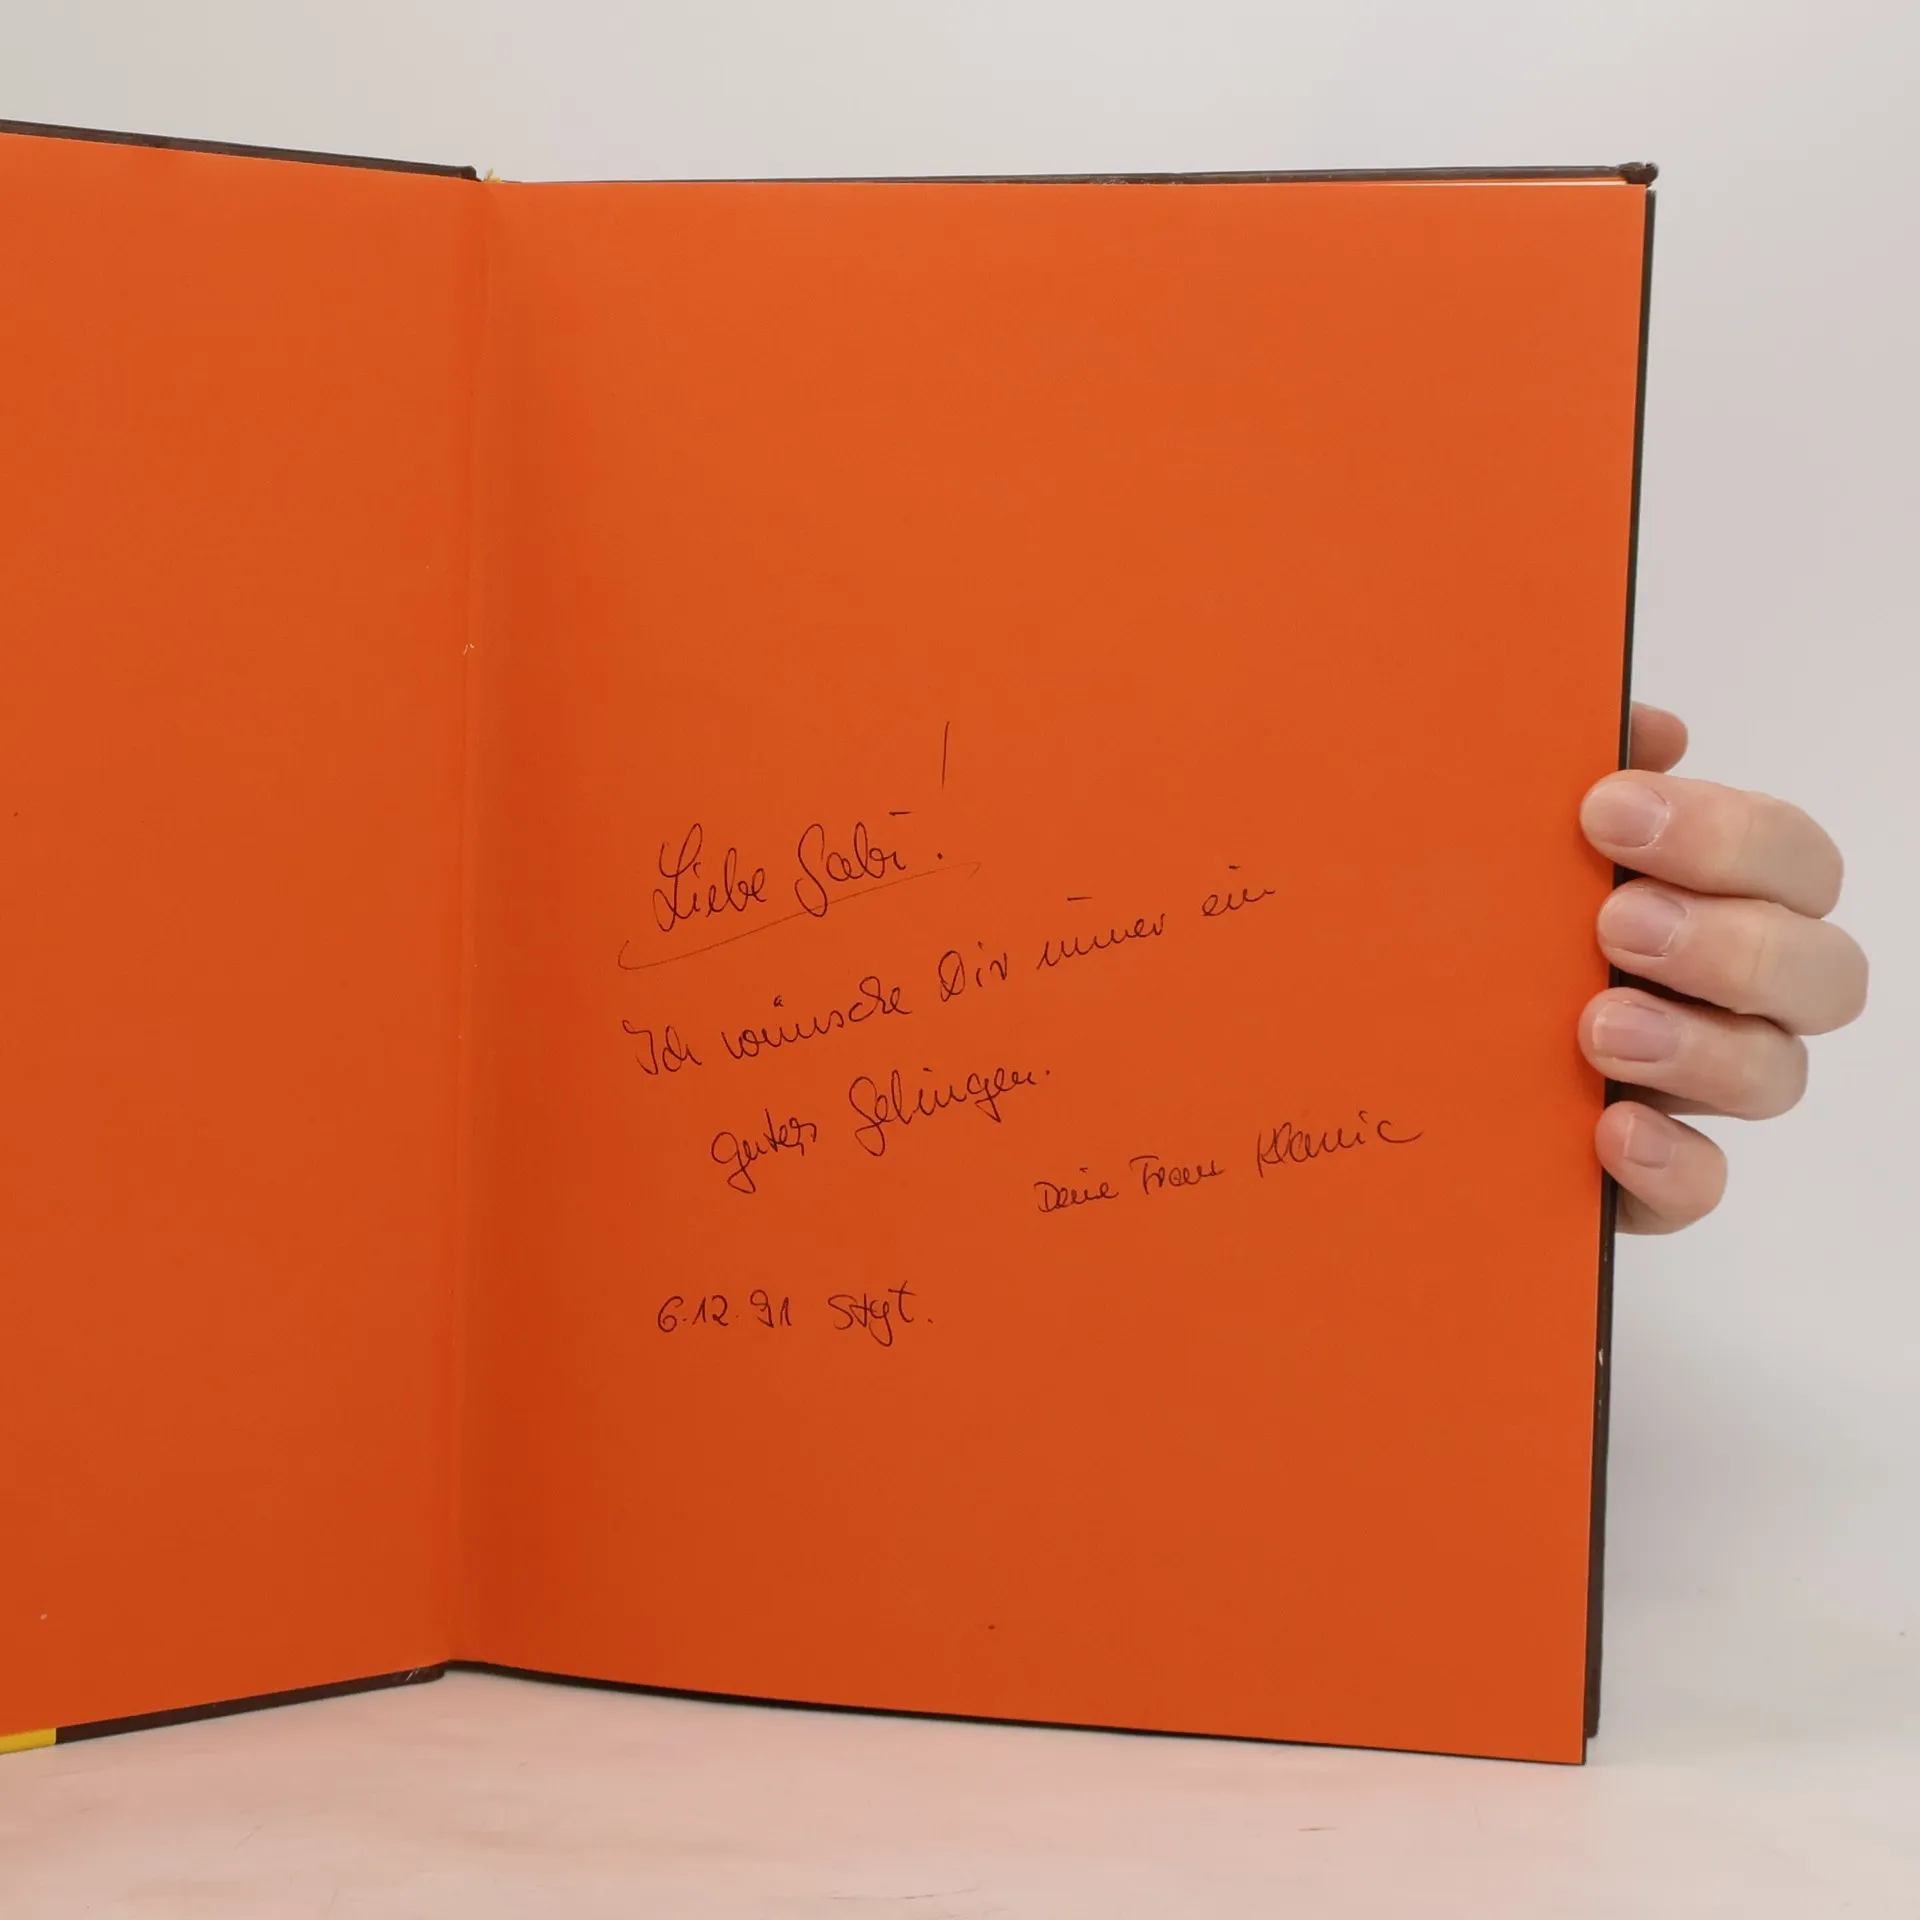 Liebe Gabi!
Ich wünsche Dir immer ein
gutes Gelingen.
Deine Frau
6.12.91 Stgt.